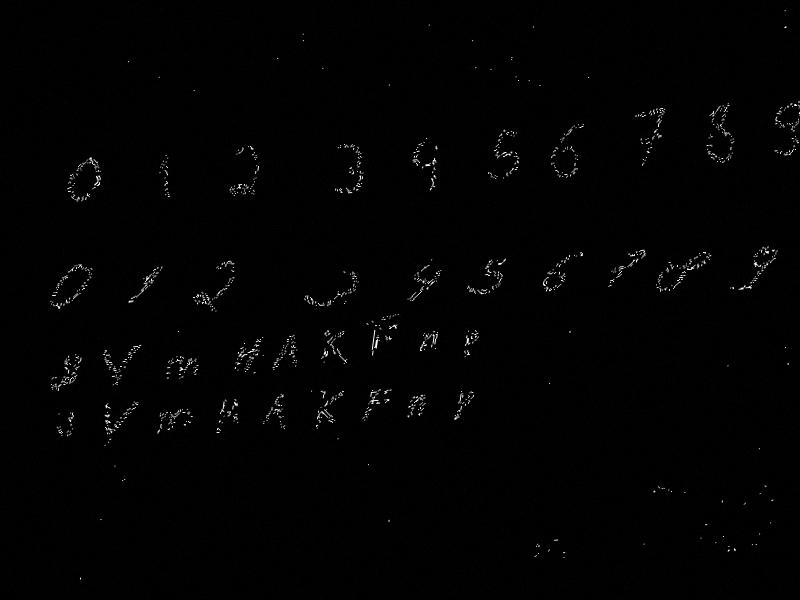 0 1 2 3 4 5 6 7 8 9
0 1 2 3 4 5 6 7 8 9
V m H A K F n p
V m H A K F n p